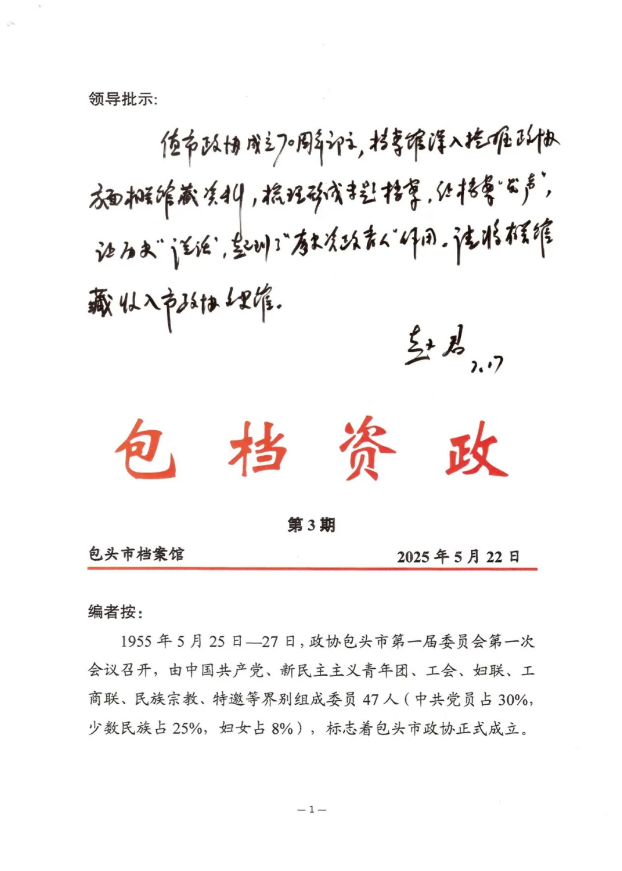 领导批示:
值市政协成立70周年之际,档案馆深入挖掘政协
方面相关馆藏资料,梳理形成专题档案,让档案"发声",
让历史"说话",起到了"存史资政育人"作用。请将相关馆
藏收入市政协文史馆。
赵君
7.17
包档资政
第3期
包头市档案馆 2025年5月22日
编者按:
1955年5月25日—27日,政协包头市第一届委员会第一次
会议召开,由中国共产党、新民主主义青年团、工会、妇联、工
商联、民族宗教、特邀等界别组成委员47人(中共党员占30%,
少数民族占25%,妇女占8%),标志着包头市政协正式成立。
—1—